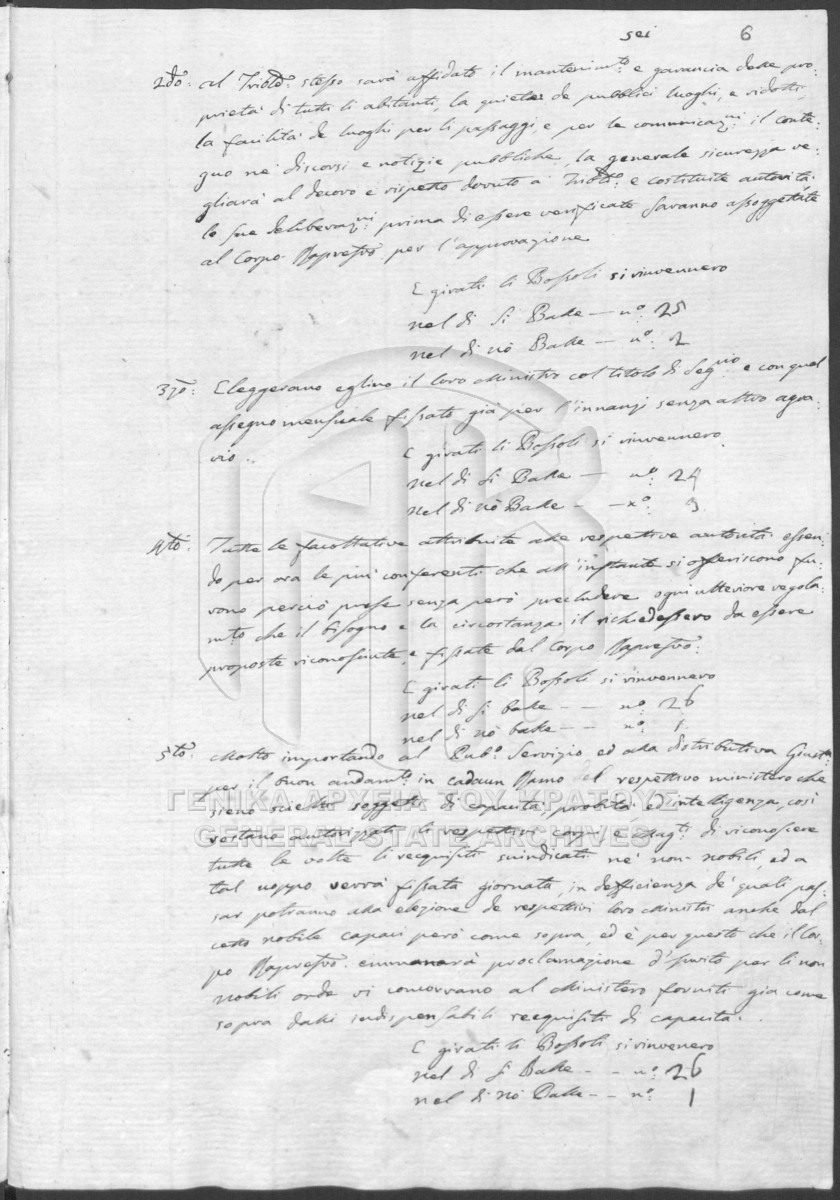 sei 6
2do. al Trible. stesso sarà affidato il mantenimto. e garancia delle pro=
prietà di tutti li abitanti, la quiete de pubblici luoghi, e ridotti,
la facilità de luoghi per li passaggi, e per le comunicazni: il conte=
gno ne' discorsi e notizie pubbliche, la generale sicurezza ve=
gliarà al decoro e rispetto dovuto a' e costituite autorità.
le sue deliberazni: prima di essere verificate saranno assoggettate
al Corpo Rapresvo per l'approvazione
E girati li Bossoli si rinvennero
nel di Si Balle — no: 25
nel di nò Balle — no: 2
3zo: Eleggerano eglino il loro Ministro col titolo di Segrio e con quel
assegno mensuale fissato già per l'innanzi senza altro agra=
vio.
E girati li Bossoli si rinvennero
nel di Si Balle — no: 24
nel di nò Balle — no: 3
4to. Tutte le facoltative attribuite alle respettive autorità essen=
do per ora le più conferenti che all'instante si offeriscono fu=
rono perciò prese senza però precludere ogni ulteriore regola=
mto che il bisogno e la circostanza il richiedessero da essere
proposte riconosciute, e fissate dal Corpo Rapresvo:
E girati li Bossoli si rinvennero
nel di Si balle — no: 26
nel di nò balle — no: 1
5to. Molto importando al Pubo. Servizio ed alla distributiva Giusta
per il buon andamto. in cadaun Ramo del respettivo ministero che
sieno scielti soggetti di capacità, probità, ed intelligenza, così
restano autorizzati li respettivi corpi e Magti. di riconoscere
tutte le volte li requisiti suindicati ne' non nobili, ed a
tal uoppo verrà fissata giornata, in defficienza de' quali pas=
sar potranno alla elezione de respettivi loro Ministri anche dal
ceto nobile capaci però come sopra, ed è per questo che il Cor=
po Rapresvo. emmanarà proclamazione d'invito per li non
nobili onde vi concorrano al Ministero forniti già come
sopra delli indispensabili recquisiti di capacità.
E girati li Bossoli si rinvenero
nel di Si Balle — no: 26
nel di nò Balle — no: 1
ΓΕΝΙΚΑ ΑΡΧΕΙΑ ΤΟΥ ΚΡΑΤΟΥΣ
GENERAL STATE ARCHIVES